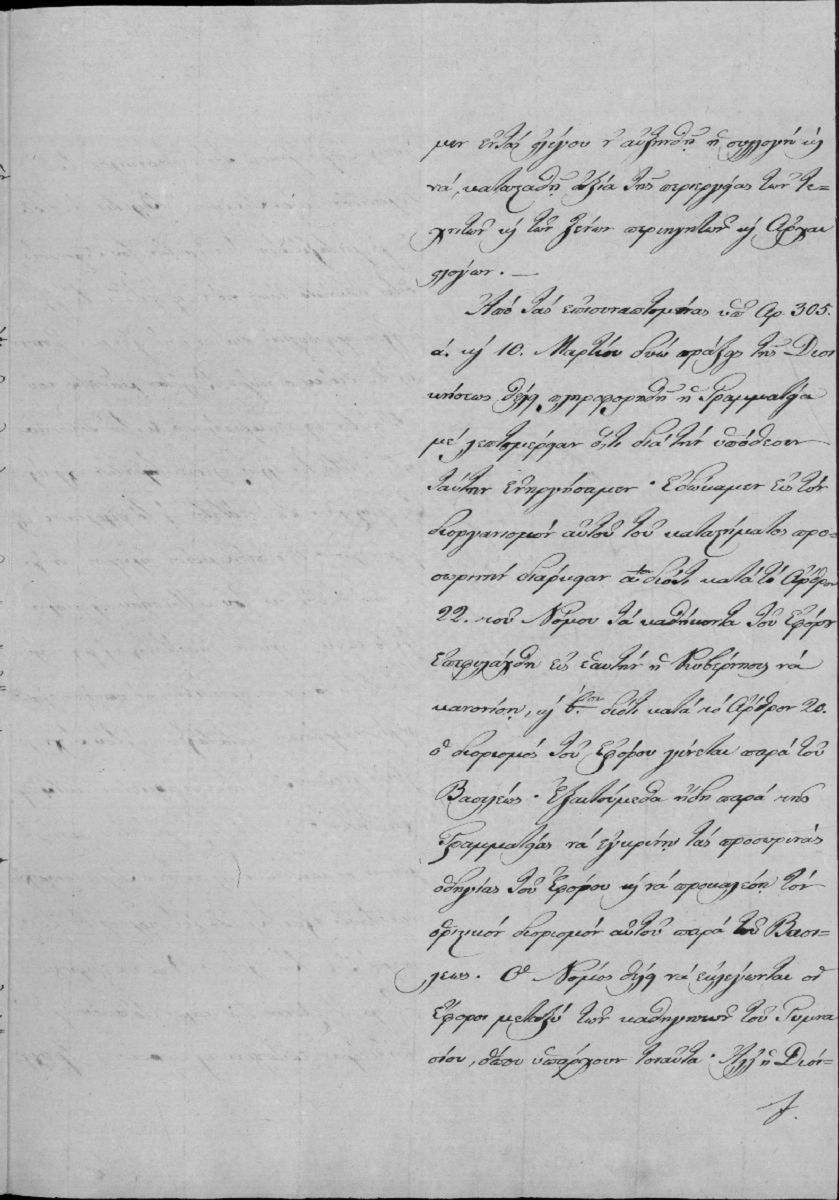 μεν ἐντὸς ὀλίγου ν' αὐξηθῇ ἡ συλλογὴ κ
νὰ κατασταθῇ ἀξία τῆς περιεργείας τῶν τε-
χνιτῶν κ τῶν ξένων περιηγητῶν κ Ἀρχαι
ολόγων. —
Ἀπὸ τὰς ἐπισυναπτομένας ὑπ' Ἀρ. 305.
ά. κ 10. Μαρτίου δύω πράξεις τῆς Διοι
κήσεως θέλει πληροφορηθῆ ἡ Γραμματεία
μὲ λεπτομέρειαν ὅ,τι διὰ τὴν ὑπόθεσιν
ταύτην ἐνηργήσαμεν. Ἐδώκαμεν εἰς τὸν
διοργανισμὸν αὐτοῦ τοῦ καταστήματος προ-
σωρινὴν διάρκειαν α διότι κατὰ τὸ Ἄρθρον
22. τοῦ Νόμου τὰ καθήκοντα τοῦ Ἐφόρου
ἐπεφυλάχθη εἰς ἑαυτὴν ἡ Κυβέρνησις νὰ
κανονίσῃ, κ β. διότι κατὰ τὸ Ἄρθρον 20.
ὁ διορισμὸς τοῦ Ἐφόρου γίνεται παρὰ τοῦ
Βασιλέως. Ἐξαιτούμεθα ἤδη παρὰ τῆς
Γραμματείας νὰ ἐγκρίνῃ τὰς προσωρινὰς
ὁδηγίας τοῦ Ἐφόρου κ νὰ προκαλέσῃ τὸν
ὁριστικὸν διορισμὸν αὐτοῦ παρὰ τοῦ Βασι-
λέως. Ὁ Νόμος θέλει νὰ ἐκλέγωνται οἱ
Ἔφοροι μεταξὺ τῶν καθηγητῶν τοῦ Γυμνα
σίου, ὅπου ὑπάρχουν τοιαῦτα. Ἀλλ' ἡ Διοί-